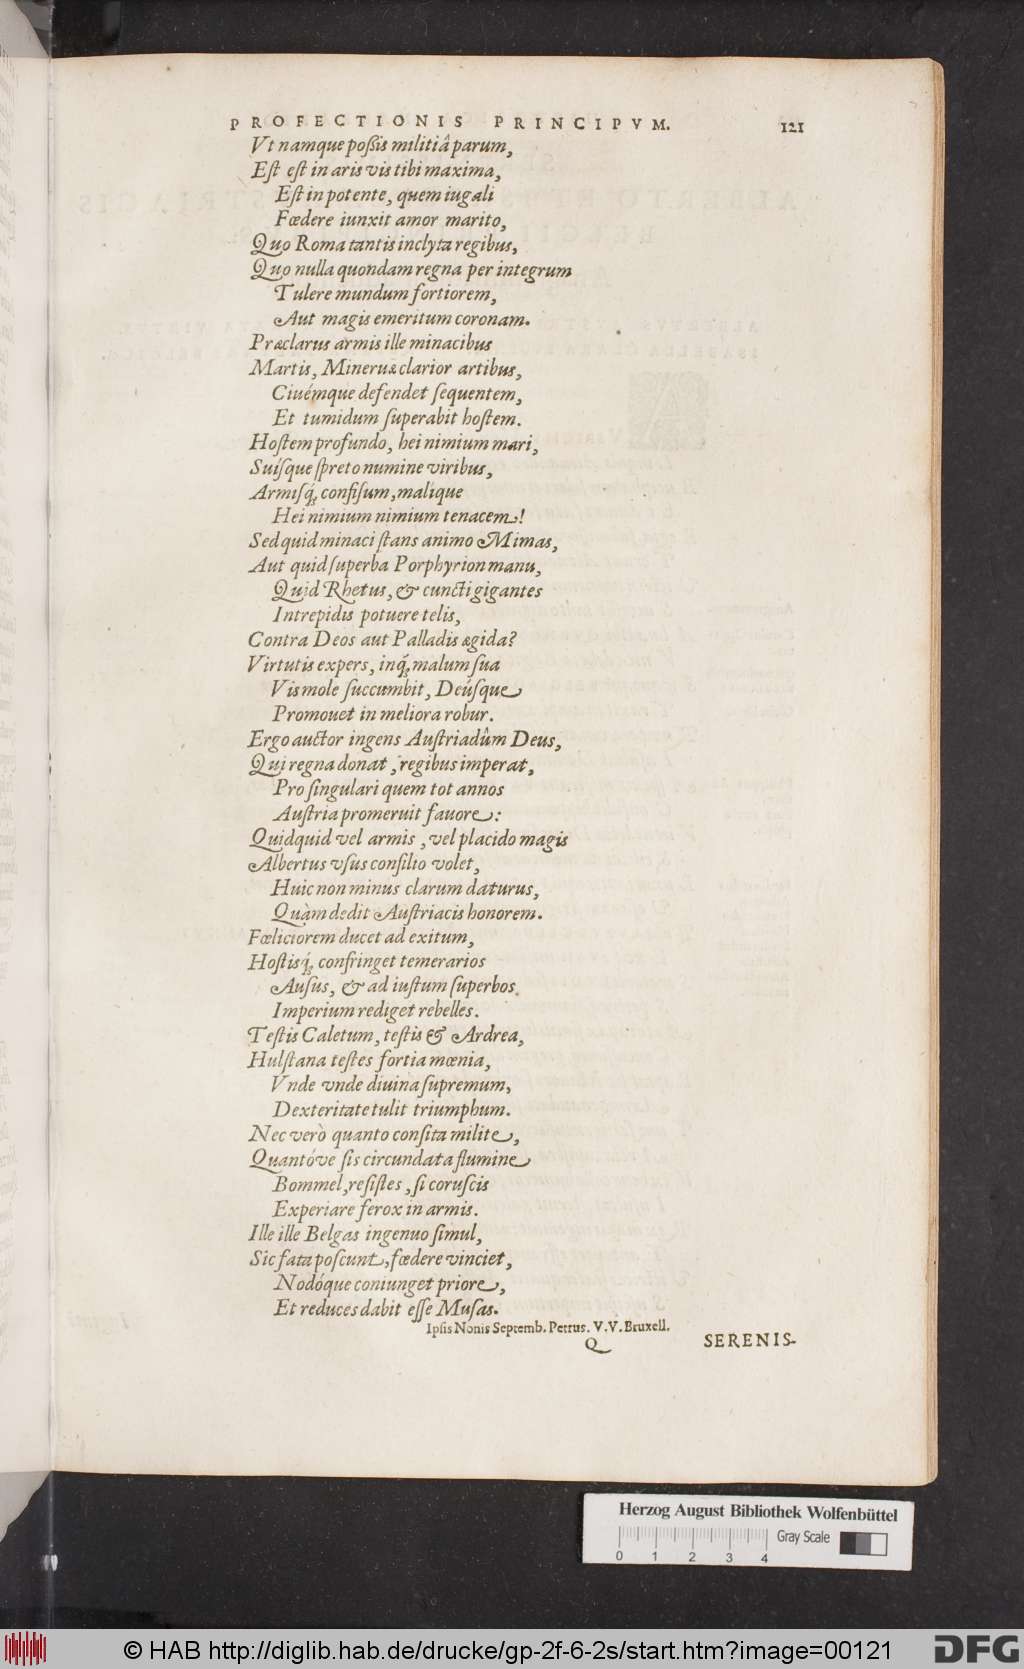 PROFECTIONIS PRINCIPVM. 121
Vt namque poßis militiâ parum,
Est est in aris vis tibi maxima,
Est in potente, quem iugali
Fœdere iunxit amor marito,
Quo Roma tantis inclyta regibus,
Quo nulla quondam regna per integrum
Tulere mundum fortiorem,
Aut magis emeritum coronam.
Præclarus armis ille minacibus
Martis, Mineruæ clarior artibus,
Ciuémque defendet sequentem,
Et tumidum superabit hostem.
Hostem profundo, hei nimium mari,
Suísque spreto numine viribus,
Armisq́; confisum, malique
Hei nimium nimium tenacem!
Sed quid minaci stans animo Mimas,
Aut quid superba Porphyrion manu,
Quid Rhetus, & cuncti gigantes
Intrepidis potuere telis,
Contra Deos aut Palladis ægida?
Virtutis expers, inq́; malum sua
Vis mole succumbit, Deúsque
Promouet in meliora robur.
Ergo auctor ingens Austriadûm Deus,
Qui regna donat, regibus imperat,
Pro singulari quem tot annos
Austria promeruit fauore:
Quidquid vel armis, vel placido magis
Albertus vsus consilio volet,
Huic non minus clarum daturus,
Quàm dedit Austriacis honorem.
Fœliciorem ducet ad exitum,
Hostisq́; confringet temerarios
Ausus, & ad iustum superbos
Imperium rediget rebelles.
Testis Caletum, testis & Ardrea,
Hulstana testes fortia mœnia,
Vnde vnde diuina supremum,
Dexteritate tulit triumphum.
Nec verò quanto consita milite,
Quantóve sis circundata flumine
Bommel, resistes, si coruscis
Experiare ferox in armis.
Ille ille Belgas ingenuo simul,
Sic fata poscunt, fœdere vinciet,
Nodóque coniunget priore,
Et reduces dabit esse Musas.
Ipsis Nonis Septemb. Petrus. V. V. Bruxell.
Q SERENIS-
Herzog August Bibliothek Wolfenbüttel
Gray Scale
0 1 2 3 4
© HAB http://diglib.hab.de/drucke/gp-2f-6-2s/start.htm?image=00121 DFG